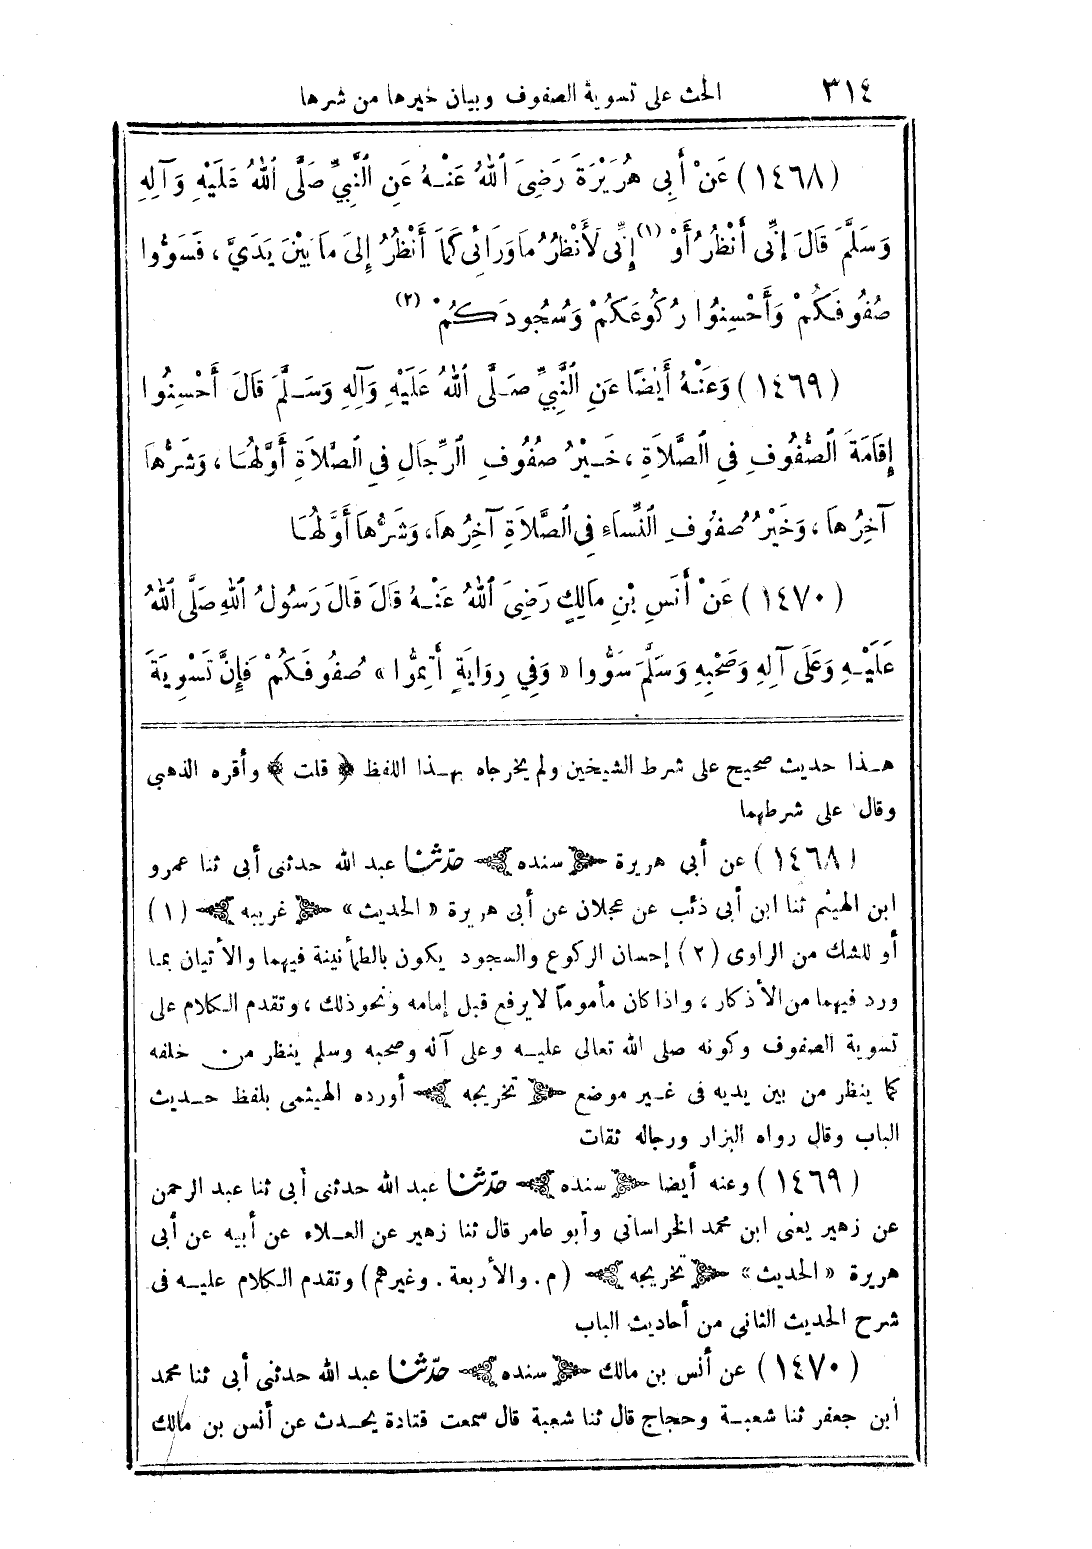 ٣١٤ الحث على تسوية الصفوف وبيان خيرها من شرها
(١٤٦٨) عَنْ أَبِى هُرَيْرَةَ رَضِىَ ٱللهُ عَنْهُ عَنِ ٱلنَّبِيِّ صَلَّى ٱللهُ عَلَيْهِ وَآلِهِ
وَسَلَّمَ قَالَ إِنِّى أَنْظُرُ أَوْ (١) إِنِّى لَأَنْظُرُ مَا وَرَائِى كَمَا أَنْظُرُ إِلىَ مَا بَيْنَ يَدَيَّ ، فَسَوُّوا
صُفُوفَكُمْ وَأَحْسِنُوا رُكُوعَكُمْ وَسُجُودَكُمْ (٢)
(١٤٦٩) وَعَنْهُ أَيْضًا عَنِ ٱلنَّبِيِّ صَلَّى ٱللهُ عَلَيْهِ وَآلِهِ وَسَلَّمَ قَالَ أَحْسِنُوا
إِقَامَةَ ٱلصُّفُوفِ فِى ٱلصَّلَاةِ ، خَيْرُ صُفُوفِ ٱلرِّجَالِ فِى ٱلصَّلَاةِ أَوَّلُهَا ، وَشَرُّهَا
آخِرُهَا ، وَخَيْرُ صُفُوفِ ٱلنِّسَاءِ فِى ٱلصَّلَاةِ آخِرُهَا، وَشَرُّهَا أَوَّلُهَا
(١٤٧٠) عَنْ أَنَسِ بْنِ مَالِكٍ رَضِىَ ٱللهُ عَنْهُ قَالَ قَالَ رَسُولُ ٱللهِ صَلَّى ٱللهُ
عَلَيْهِ وَعَلَى آلِهِ وَصَحْبِهِ وَسَلَّمَ سَوُّوا « وَفِي رِوَايَةٍ أَتِمُّوا » صُفُوفَكُمْ فَإِنَّ تَسْوِيَةَ
هذا حديث صحيح على شرط الشيخين ولم يخرجاه بهذا اللفظ ﴿ قلت ﴾ وأقره الذهبى
وقال على شرطهما
(١٤٦٨) عن أبى هريرة ﴿ سنده ﴾ حدّثنا عبد الله حدثنى أبى ثنا عمرو
ابن الهيثم ثنا ابن أبى ذئب عن عجلان عن أبى هريرة « الحديث » ﴿ غريبه ﴾ (١)
أو للشك من الراوى (٢) إحسان الركوع والسجود يكون بالطمأنينة فيهما والأتيان بما
ورد فيهما من الأذكار ، واذا كان مأموماً لا يرفع قبل إمامه ونحو ذلك ، وتقدم الكلام على
تسوية الصفوف وكونه صلى الله تعالى عليه وعلى آله وصحبه وسلم ينظر من خلفه
كما ينظر من بين يديه فى غير موضع ﴿ تخريجه ﴾ أورده الهيثمى بلفظ حديث
الباب وقال رواه البزار ورجاله ثقات
(١٤٦٩) وعنه أيضا ﴿ سنده ﴾ حدّثنا عبد الله حدثنى أبى ثنا عبد الرحمن
عن زهير يعنى ابن محمد الخراسانى وأبو عامر قال ثنا زهير عن العلاء عن أبيه عن أبى
هريرة « الحديث » ﴿ تخريجه ﴾ (م . والأربعة . وغيرهم) وتقدم الكلام عليه فى
شرح الحديث الثانى من أحاديث الباب
(١٤٧٠) عن أنس بن مالك ﴿ سنده ﴾ حدّثنا عبد الله حدثنى أبى ثنا محمد
ابن جعفر ثنا شعبة وحجاج قال ثنا شعبة قال سمعت قتادة يحدث عن أنس بن مالك